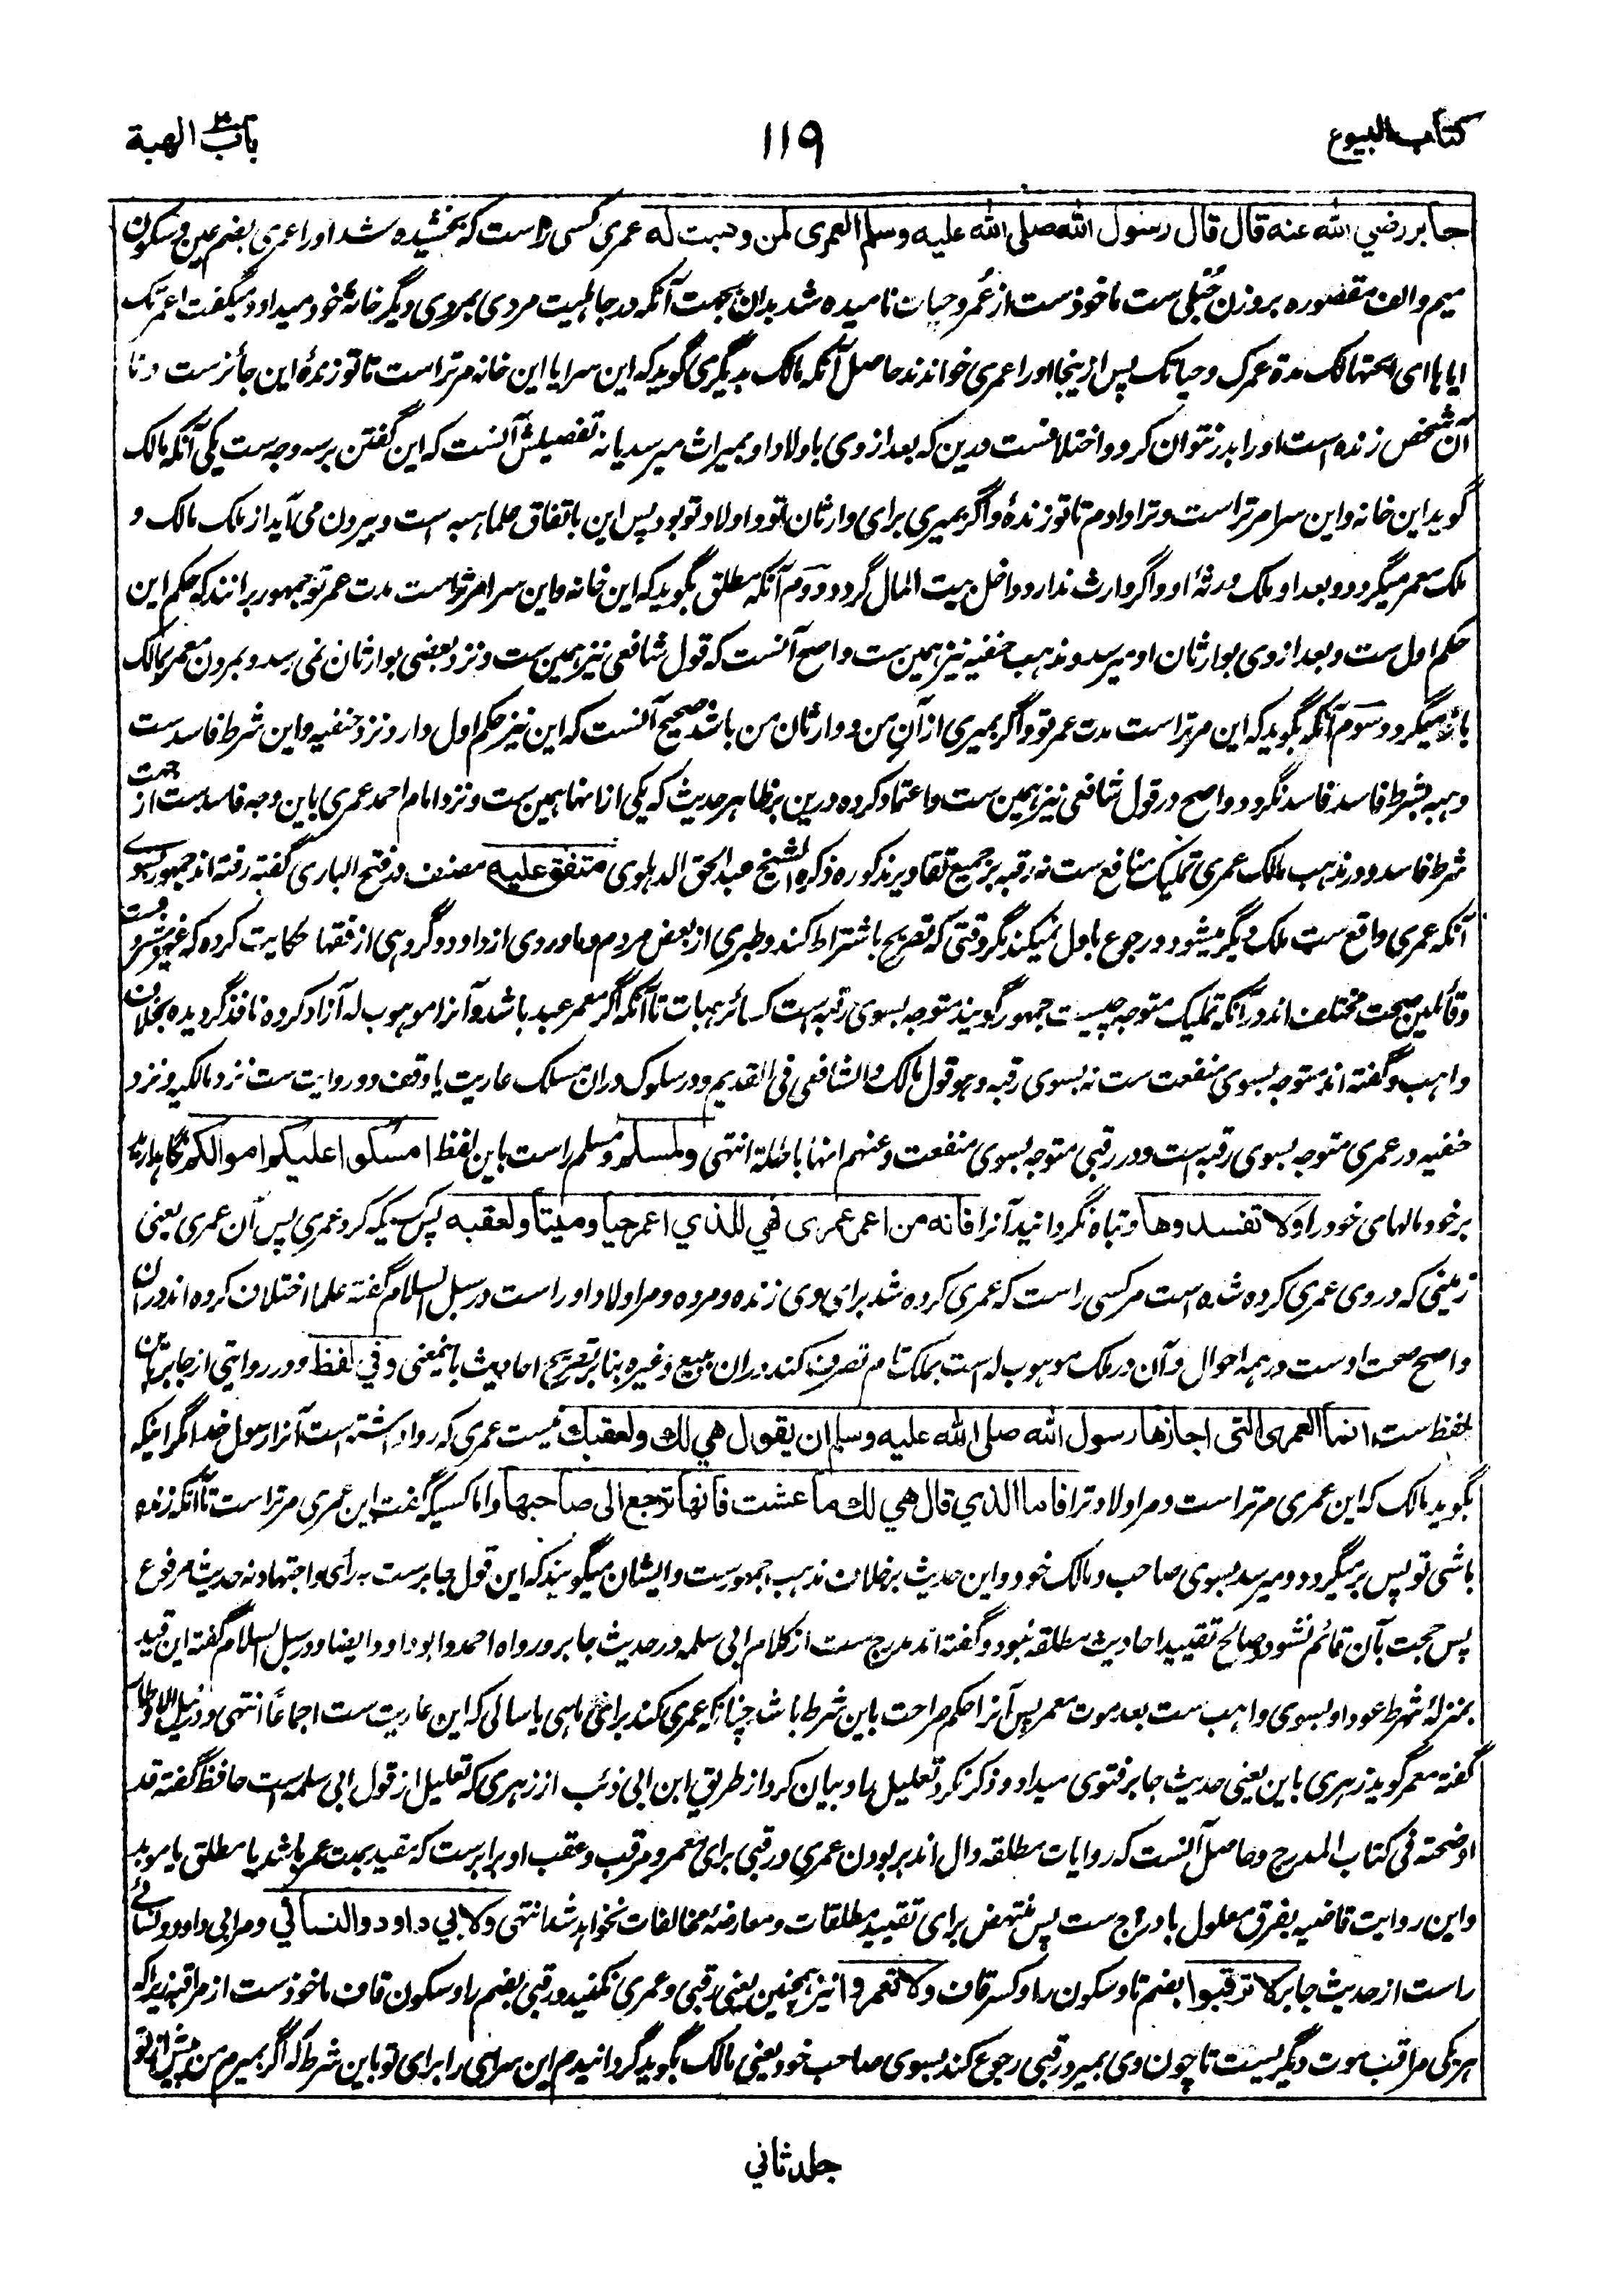 كتاب البيوع
۱۱۹
باب الهبة
جابر رضي الله عنه قال قال رسول الله صلى الله عليه وسلم العمرى لمن وهبت له عمری کسی راست که بخشیده شد او را عمری بضم عین و سکون
میم و الف مقصوره بر وزن حُبلی ست ماخوذست از عُمر و حیات نامیده شد بدان بجهت آنکه در جاهلیت مردی بمردی دیگر خانهٔ خود میداد و میگفت اعمرتک
ایاها ای ابحتها لک مدة عمرک و حیاتک پس ازینجا او را عمری خواندند حاصل آنکه مالک بدیگری گوید که این سرا یا این خانه مر تراست تا تو زندهٔ این جائزست و تا
آن شخص زنده است او را بدر نتوان کرد و اختلافست درین که بعد از وی باولاد او بمیراث میرسد یا نه تفصیلش آنست که این گفتن بر سه وجه ست یکی آنکه مالک
گوید این خانه و این سرا مر تراست و ترا دادم تا تو زندهٔ و اگر بمیری برای وارثان تو و اولاد تو بود پس این باتفاق علما هبه است و بیرون می‌آید از ملک مالک و
ملک معمر میگردد و بعد او ملک ورثهٔ او و اگر وارث ندارد داخل بیت المال گردد دوم آنکه مطلق بگوید که این خانه و این سرا مر تراست مدت عمر تو جمهور برانند که حکم این
حکم اول ست و بعد از وی بوارثان او میرسد و مذهب حنفیه نیز همین ست و اصح آنست که قول شافعی نیز همین ست و نزد بعضی بوارثان نمی‌رسد و بمردن معمر بمالک
باز میگردد سوم آنکه بگوید که این مر تراست مدت عمر تو و اگر بمیری از آنِ من و وارثان من باشد صحیح آنست که این نیز حکم اول دارد نزد حنفیه و این شرط فاسدست
و هبه بشرط فاسد فاسد نگردد و اصح در قول شافعی نیز همین ست و اعتماد کرده درین بظاهر حدیث که یکی ازانها همین ست و نزد امام احمد عمری باین وجه فاسد ست از جهت
شرط فاسد و در مذهب مالک عمری تملیک منافع ست نه رقبه بر جمیع تقادیر مذکوره ذکره الشیخ عبد الحق الدهلوی متفق علیه مصنف در فتح الباری گفته رفته اند جمهور بسوی
آنکه عمری واقع ست ملک دیگر میشود و رجوع باول نمیکند مگر وقتی که تصریح باشتراط کند و طبری از بعض مردم و ماوردی از داود و گروهی از فقها حکایت کرده که غیر مشروعست
و قائلین صحت مختلف اند در آنکه تملیک متوجه چیست جمهور گویند متوجه بسوی رقبه است کسائر هبات تا آنکه اگر معمر عبد باشد و آنرا موهوب له آزاد کرده نافذ گردیده بخلاف
واهب و گفته اند متوجه بسوی منفعت ست نه بسوی رقبه و هو قول مالک و الشافعی فی القدیم و در سلوک دران مسلک عاریت یا وقف دو روایت ست نزد مالکیه و نزد
حنفیه در عمری متوجه بسوی رقبه است و در رقبی متوجه بسوی منفعت و عنهم انها باطلة انتهی ولمسلم و مسلم راست باین لفظ امسكوا عليكم اموالكم نگاهدارید
بر خود مالهای خود را ولا تفسدوها و تباه نگردانید آنرا فانه من اعمر عمرى فهي للذي اعمر حيا وميتا ولعقبه پس کسیکه کرد عمری پس آن عمری یعنی
زمینی که در وی عمری کرده شده است مر کسی راست که عمری کرده شد برای وی زنده و مرده و مر اولاد او راست در سبل السلام گفته علما اختلاف کرده اند دران
و اصح صحت اوست در همه احوال و آن در ملک موهوب له است بملک تام تصرف کند دران ببیع و غیره بنا بر تصریح احادیث باینمعنی وفي لفظ و در روایتی از جابر باین
لفظ ست انما العمرى التي اجازها رسول الله صلى الله عليه وسلم ان يقول هي لك ولعقبك نیست عمری که روا داشته است آنرا رسول خدا مگر اینکه
بگوید مالک که این عمری مر تراست و مر اولاد ترا فاما اذا الذي قال هي لك ما عشت فانها ترجع الى صاحبها و اما کسیکه گفت این عمری مر تراست تا آنکه زنده
باشی تو پس برمیگردد و میرسد بسوی صاحب و مالک خود و این حدیث بر خلاف مذهب جمهورست و ایشان میگویند که این قول جابرست برأی و اجتهاد نه حدیث مرفوع
پس حجت بآن قائم نشود و صالح تقیید احادیث مطلقه نبود و گفته اند مدرج ست از کلام ابی سلمه در حدیث جابر و رواه احمد و ابو داود ایضا و در سبل السلام گفته این قید
بمنزلهٔ شرط عود او بسوی واهب ست بعد موت معمر پس آنرا حکم صراحت باین شرط باشد چنانکه عمری کند برای ماهی یا سالی که این عاریت ست اجماعاً انتهی و در نیل الاوطار
گفته معمر گوید زهری باین یعنی حدیث جابر فتوی میداد و ذکر نکرد تعلیل ها و بیان کرد از طریق ابن ابی ذئب از زهری که تعلیل از قول ابی سلمه است حافظ گفته قد
اوضحته فی کتاب المدرج و حاصل آنست که روایات مطلقه دال اند بر بودن عمری و رقبی برای معمر و مرقب و عقب او برابرست که مقید بمدت عمر باشد یا مطلق یا موبد
و این روایت قاضیه بفرق معلول بادراج ست پس منتهض برای تقیید مطلقات و معارضهٔ مخالفات نخواهد شد انتهی ولابي داود والنسائي و مر ابی داود و نسائی
راست از حدیث جابر لا ترقبوا بضم تا و سکون را و کسر قاف ولا تعمروا نیز همچنین یعنی رقبی و عمری نکنید و رقبی بضم را و سکون قاف ماخوذست از مراقبه زیراکه
هر یکی مراقب موت دیگریست تا چون وی بمیرد رقبی رجوع کند بسوی صاحب خود یعنی مالک بگوید گردانیدم این سرای را برای تو باین شرط که اگر بمیرم من پیش از تو
جلد ثاني